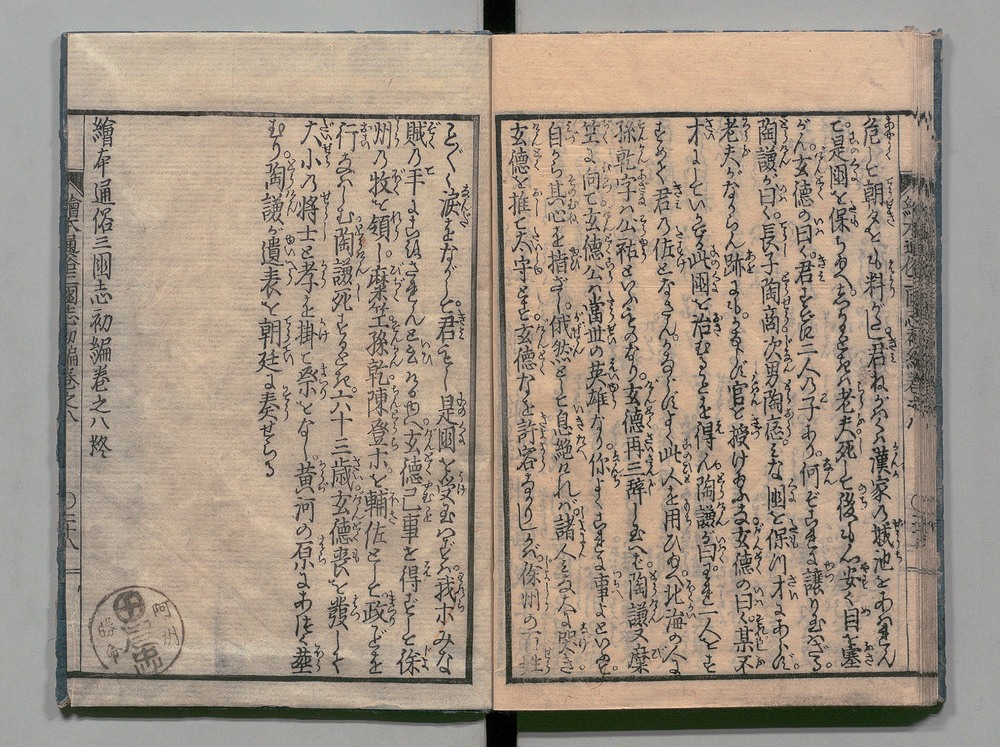 危して朝夕をも料がたし君ねがハくハ漢家の城池をあハれん
で是國を保ちたまへしからるときハ老夫死して後もよく安く目を塞
がん玄德の曰く君すでに二人の子あり何ぞこれに讓り玉ハざる
陶謙が曰く長子陶商次男陶應ミな國を保つ才にあらず
老夫がなからん跡にもかならず官を授けたまふな玄德の曰く某不
才にしていかでか此國を治むることを得ん陶謙が曰くそれ一人をす
すめて君の佐となさんかならずよく此人を用ひたまへ北海の人よ
孫乾字ハ公祐といふものなり玄德再三辞し玉へども陶謙又糜
竺に向て玄德公ハ當世の英雄なり你よくこれに事よといひ
自から其心を指ざし俄然として息絶ければ諸人ミな大に哭き
玄德を推て太守とす玄德なを許容なかりしが徐州の百姓
ことごとく涙をながして君もし是國を受玉ハずんバ我ホみな
賊の手にころされんと云ける内玄德已事を得ずして徐
州の牧を領し糜竺孫乾陳登ホを輔佐として政ごとを
行なハしむ陶謙死するとき六十三歳玄德喪を發して
大小の將士と孝を掛て祭をなし黄河の原にあつく葬
むり陶謙が遺表を朝廷に奏せらる
繪本通俗三國志初編卷之八終
繪本通俗三國志初編卷之八